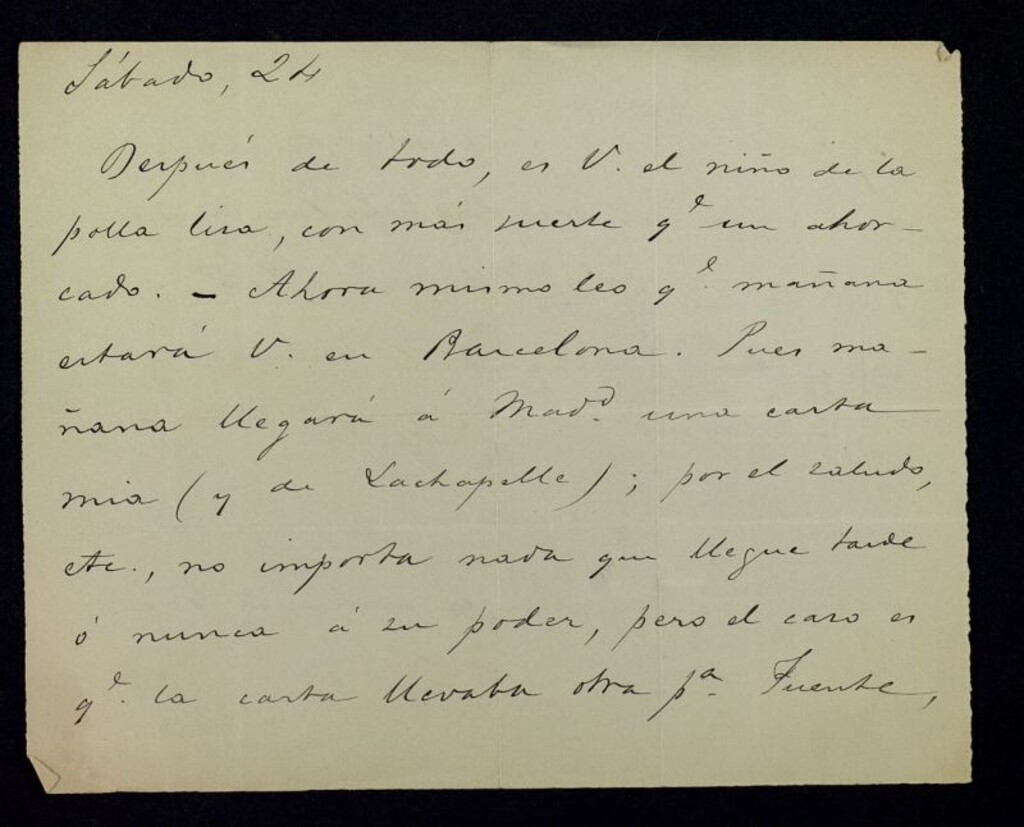 Sábado, 24
Después de todo, es V. el niño de la
polla lisa, con más suerte q.e un ahor-
cado. - Ahora mismo leo q.e mañana
estará V. en Barcelona. Pues ma-
ñana llegará á Mad.d una carta
mia (y de Lachapelle); por el saludo,
etc., no importa nada que llegue tarde
ó nunca á su poder, pero el caso es
q.e la carta llevaba otra p.a Fuente,